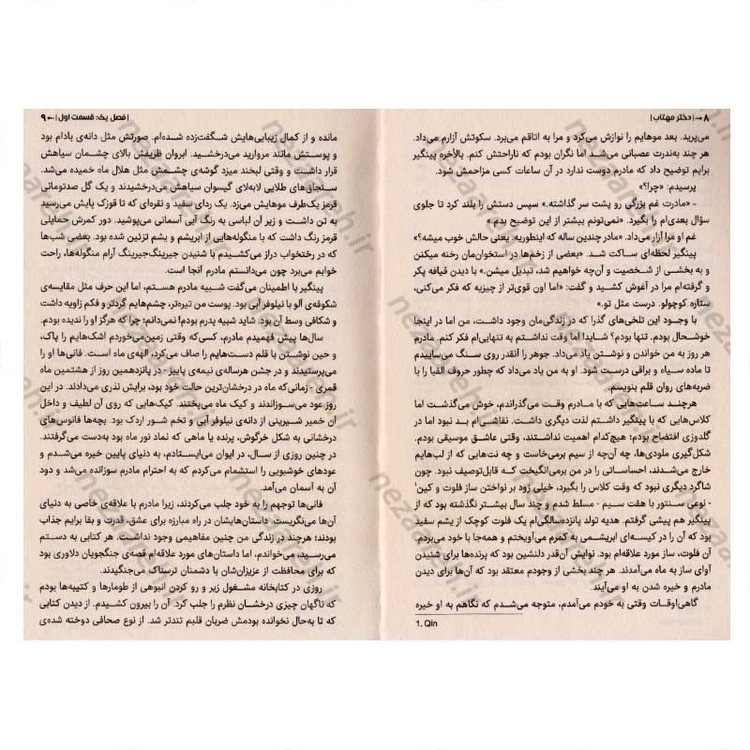 ۸ →| دختر مهتاب |
می‌پرید. بعد موهایم را نوازش می‌کرد و مرا به اتاقم می‌برد. سکوتش آزارم می‌داد.
هر چند به‌ندرت عصبانی می‌شد اما نگران بودم که ناراحتش کنم. بالأخره پینگیر
برایم توضیح داد که مادرم دوست ندارد در آن ساعات کسی مزاحمش شود.
پرسیدم: «چرا؟»
- «مادرت غم بزرگی رو پشت سر گذاشته.» سپس دستش را بلند کرد تا جلوی
سؤال بعدی‌ام را بگیرد. «نمی‌تونم بیشتر از این توضیح بدم.»
غم او مرا آزار می‌داد. «مادر چندین ساله که اینطوریه. یعنی حالش خوب میشه؟»
پینگیر لحظه‌ای ساکت شد. «بعضی از زخم‌ها در استخوان‌مان رخنه میکنن
و به بخشی از شخصیت و آن‌چه خواهیم شد، تبدیل میشن.» با دیدن قیافه پکر
و گرفته‌ام مرا در آغوش کشید و گفت: «اما اون قوی‌تر از چیزیه که فکر می‌کنی،
ستاره کوچولو. درست مثل تو.»
با وجود این تلخی‌های گذرا که در زندگی‌مان وجود داشت، من اما در اینجا
خوشحال بودم. تنها بودم؟ شاید! اما وقت نداشتم به تنهایی‌ام فکر کنم. مادرم
هر روز به من خواندن و نوشتن یاد می‌داد. جوهر را آنقدر روی سنگ می‌ساییدم
تا ماده سیاه و براقی درست شود. او به من یاد می‌داد که چطور حروف الفبا را با
ضربه‌های روان قلم بنویسم.
هرچند ساعت‌هایی که با مادرم وقت می‌گذراندم، خوش می‌گذشت اما
کلاس‌هایی که با پینگیر داشتم لذت دیگری داشت. نقاشی‌ام بد نبود اما در
گلدوزی افتضاح بودم؛ هیچ‌کدام اهمیت نداشتند، وقتی عاشق موسیقی بودم.
شکل‌گیری ملودی‌ها، چه آن‌چه از سیم برمی‌خاست و چه نت‌هایی که از لب‌هایم
خارج می‌شدند، احساساتی را در من برمی‌انگیخت کـه قابل‌توصیف نبود. چون
شاگرد دیگری نبود که وقت کلاس را بگیرد، خیلی زود بر نواختن ساز فلوت و کین¹
- نوعی سنتور با هفت سیم - مسلط شدم و چند سال بیشتر نگذشته بود که از
پینگیر هم پیشی گرفتم. هدیه تولد پانزده‌سالگی‌ام یک فلوت کوچک از یشم سفید
بود که آن را در کیسه‌ای ابریشمی به کمرم می‌آویختم و همه‌جا با خود می‌بردم.
آن فلوت، ساز مورد علاقه‌ام بود. نوایش آن‌قدر دلنشین بود که پرنده‌ها برای شنیدن
آوای ساز به ماه می‌آمدند. هر چند بخشی از وجودم معتقد بود که آن‌ها برای دیدن
مادرم و خیره شدن به او می‌آیند.
گاهی‌اوقات وقتی به خودم می‌آمدم، متوجه می‌شدم که نگاهم به او خیره
1. Qin
| فصل یک: قسمت اول |← ۹
مانده و از کمال زیبایی‌هایش شگفت‌زده شده‌ام. صورتش مثل دانه‌ی بادام بود
و پوستش مانند مروارید می‌درخشید. ابروان ظریفش بالای چشمان سیاهش
قرار داشت و وقتی لبخند میزد گوشه‌ی چشمش مثل هلال ماه خمیده می‌شد.
سنجاق‌های طلایی لابه‌لای گیسوان سیاهش می‌درخشیدند و یک گل صدتومانی
قرمز یک‌طرف موهایش می‌زد. یک ردای سفید و نقره‌ای که تا قوزک پایش می‌رسید
به تن داشت و زیر آن لباسی به رنگ آبی آسمانی می‌پوشید. دور کمرش حمایلی
قرمز رنگ داشت که با منگوله‌هایی از ابریشم و یشم تزئین شده بود. بعضی شب‌ها
که در رختخواب دراز می‌کشیدم با شنیدن جیرینگ‌جیرینگ آرام منگوله‌ها، راحت
خوابم می‌برد چون می‌دانستم مادرم آنجا است.
پینگیر با اطمینان می‌گفت شبیه مادرم هستم، اما این حرف مثل مقایسه‌ی
شکوفه‌ی آلو با نیلوفر آبی بود. پوست من تیره‌تر، چشم‌هایم گردتر و فکم زاویه داشت
و شکافی وسط آن بود. شاید شبیه پدرم بودم! نمی‌دانم؛ چرا که هرگز او را ندیده بودم.
سال‌ها پیش فهمیدم مادرم، کسی‌که وقتی زمین‌می‌خوردم اشک‌هایم را پاک،
و حین نوشتن با قلم دست‌هایم را صاف می‌کرد، الهه‌ی ماه است. فانی‌ها او را
می‌پرستیدند و در جشن هرساله‌ی نیمه‌ی پاییز - در پانزدهمین روز از هشتمین ماه
قمری - زمانی‌که ماه در درخشان‌ترین حالت خود بود، برایش نذری می‌دادند. در این
روز عود می‌سوزاندند و کیک ماه می‌پختند. کیک‌هایی که روی آن لطیف و داخل
آن خمیر شیرینی از دانه‌ی نیلوفر آبی و تخم شور اردک بود. بچه‌ها فانوس‌های
درخشانی به شکل خرگوش، پرنده یا ماهی که نماد نور ماه بود به‌دست می‌گرفتند.
در چنین روزی از سـال، در ایوان می‌ایستادم، به دنیای پایین خیره می‌شدم و
عودهای خوشبویی را استشمام می‌کردم که به احترام مادرم سوزانده می‌شد و دود
آن به آسمان می‌آمد.
فانی‌ها توجهم را به خود جلب می‌کردند، زیرا مادرم با علاقه‌ی خاصی به دنیای
آن‌ها می‌نگریست. داستان‌هایشان در راه مبارزه برای عشق، قدرت و بقا برایم جذاب
بودند؛ هرچند در زندگی من چنین مفاهیمی وجود نداشت. هر کتابی به دستم
می‌رسید، می‌خواندم، اما داستان‌های مورد علاقه‌ام قصه‌ی جنگجویان دلاوری بود
که برای محافظت از عزیزان‌شان با دشمنان ترسناک می‌جنگیدند.
روزی در کتابخانه مشغول زیر و رو کردن انبوهی از طومارها و کتیبه‌ها بودم
که ناگهان چیزی درخشان نظرم را جلب کرد. آن را بیرون کشیدم. از دیدن کتابی
که تا به‌حال نخوانده بودمش ضربان قلبم تندتر شد. از نوع صحافی دوخته شده‌ی